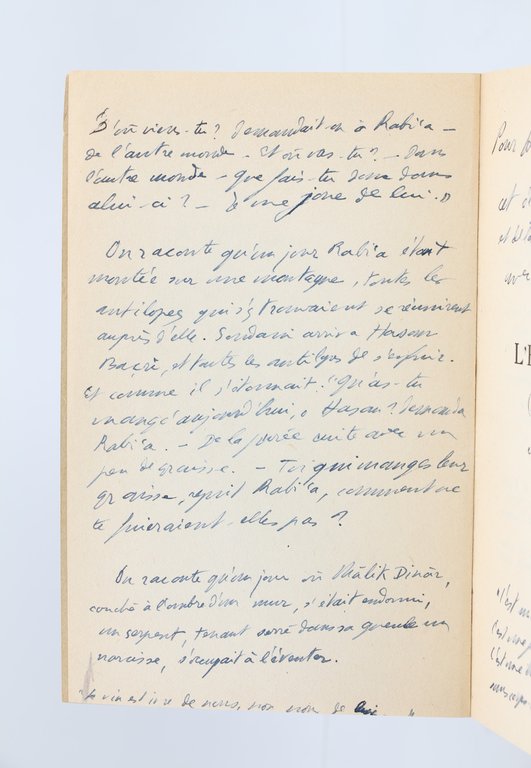 D'où viens-tu? demandait-on à Rabi'a —
de l'autre monde — Et où vas-tu? — Dans
l'autre monde — que fais-tu donc dans
celui-ci? — Je me joue de lui."
On raconte qu'un jour Rabi'a étant
montée sur une montagne, toutes les
antilopes qui s'y trouvaient se réunirent
auprès d'elle. Soudain arriva Hasan
Baçri, et toutes les antilopes de s'enfuir.
Et comme il s'étonnait: "Qu'as-tu
mangé aujourd'hui, ô Hasan? demanda
Rabi'a. — De la purée cuite avec un
peu de graisse. — Toi qui manges leur
graisse, reprit Rabi'a, comment ne
te fuieraient-elles pas?
On raconte qu'un jour où Mâlik Dinâr,
couché à l'ombre d'un mur, s'était endormi,
un serpent, tenant serré dans sa gueule un
narcisse, s'occupait à l'éventer.
"le vin est ivre de nous, non nous de lui."
Pour
et
et de l
L'
"l'est
l'est une
l'est une